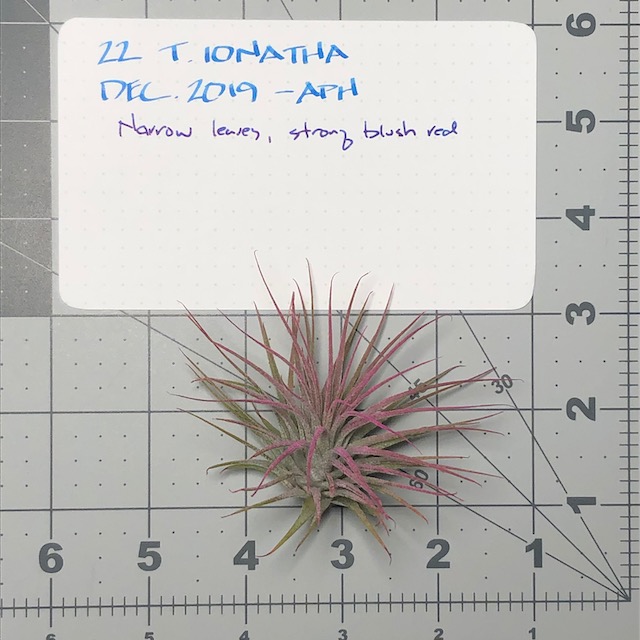 22 T. IONATHA
DEC. 2019 - APH
Narrow leaves, strong blush red
6
5
4
3
2
1
45
30
60
6 5 4 3 2 1
6 5 4 3 2 1